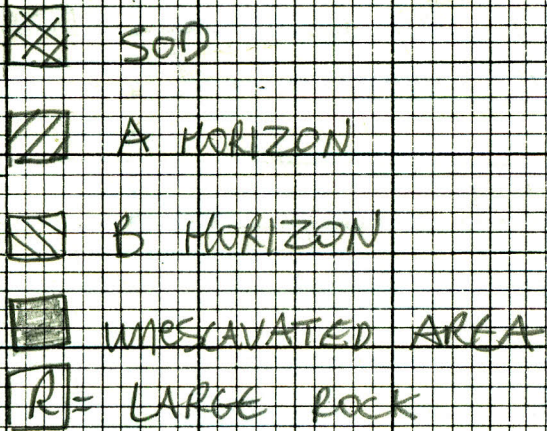 SOD
A HORIZON
B HORIZON
UNESCAVATED AREA
R = LARGE ROCK